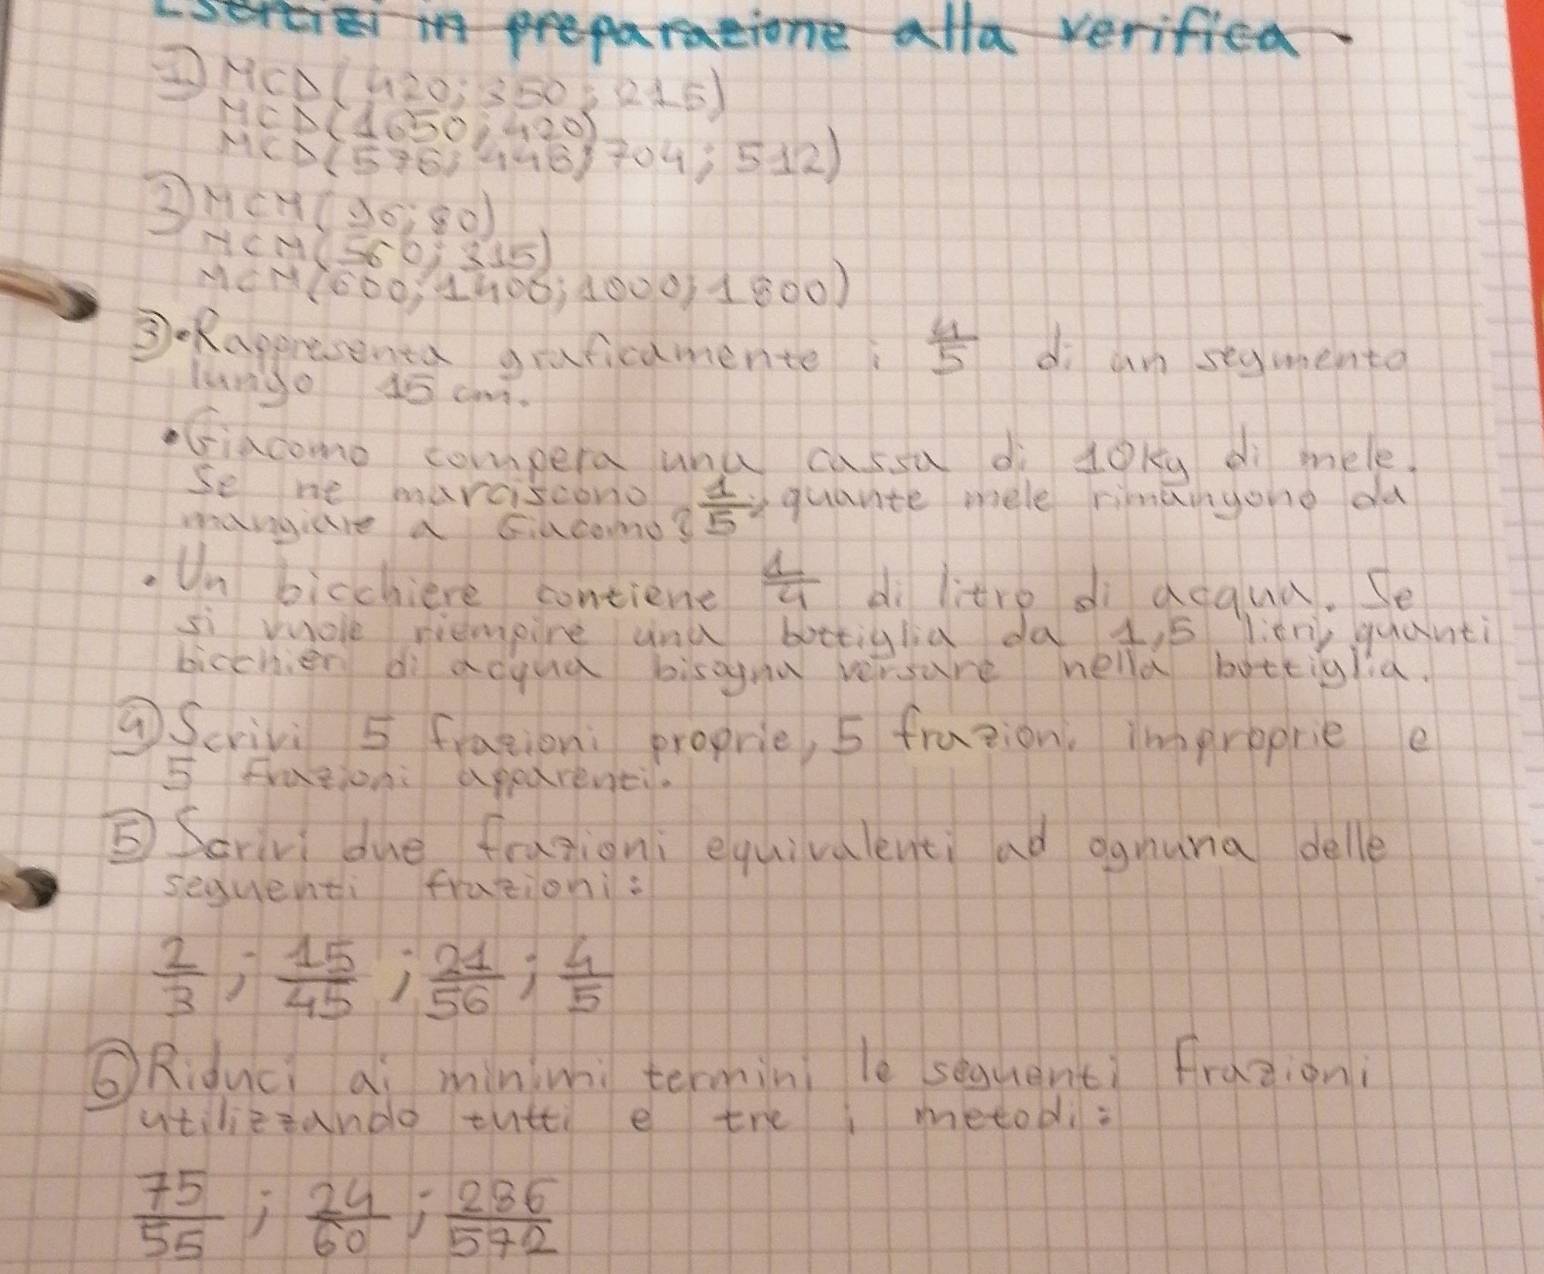 Esercizi in preparazione alla verifica.
① MCD(420; 350; 215)
MCD(1650; 420)
MCD(576; 448; 704; 512)
② MCM(96; 80)
MCM(560; 315)
MCM(600; 1400; 1000; 1800)
③•Rappresenta graficamente i 4/5 di un segmento
lungo 15 cm.
•Giacomo compera una cassa di 10Kg di mele.
Se ne marciscono 1/5, quante mele rimangono da
mangiare a Giacomo?
•Un bicchiere contiene 1/4 di litro di acqua. Se
si vuole riempire una bottiglia da 1,5 litri, quanti
bicchieri di acqua bisogna versare nella bottiglia.
④ Scrivi 5 frazioni proprie, 5 frazioni improprie e
5 frazioni apparenti.
⑤ Scrivi due frazioni equivalenti ad ognuna delle
seguenti frazioni:
2/3 ; 15/45 ; 21/56 ; 4/5
⑥ Riduci ai minimi termini le seguenti frazioni
utilizzando tutti e tre i metodi:
75/55 ; 24/60 ; 286/572